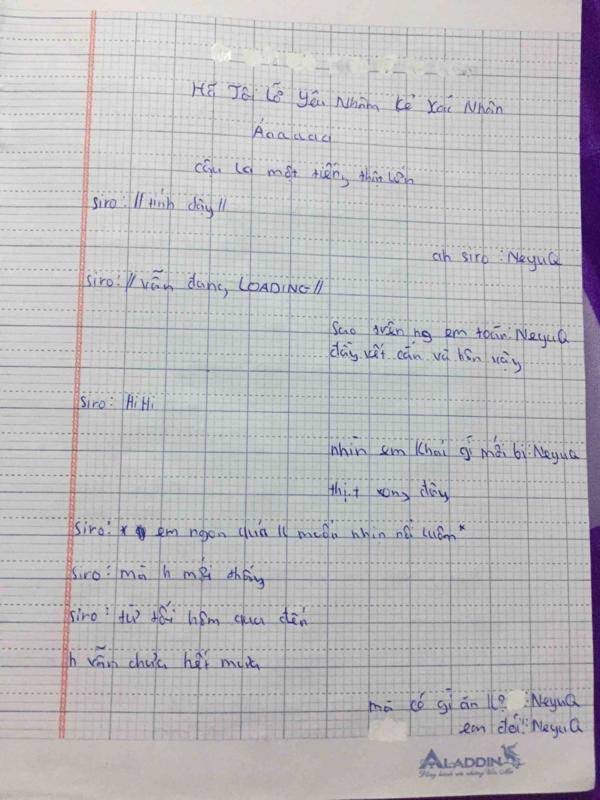 Hố Tôi Lỡ Yêu Nhầm Kẻ Xác Nhân
Áaaaaa
cậu la một tiếng thật lớn
siro: // tỉnh dậy //
ah siro : NeyuQ
siro: // vẫn đang, LOADING //
Sao trên ng em toàn: NeyuQ
đầy vết cắn và hôn vậy
siro: HiHi
nhìn em khác gì mới bị: NeyuQ
thịt xong đây
siro: * em ngon quá k muốn nhịn nổi luôn *
siro: mà h mới thấy
siro: từ tối hôm qua đến
h vẫn chưa hết mưa
mà có gì ăn k? : NeyuQ
em đói : NeyuQ
ALADDIN